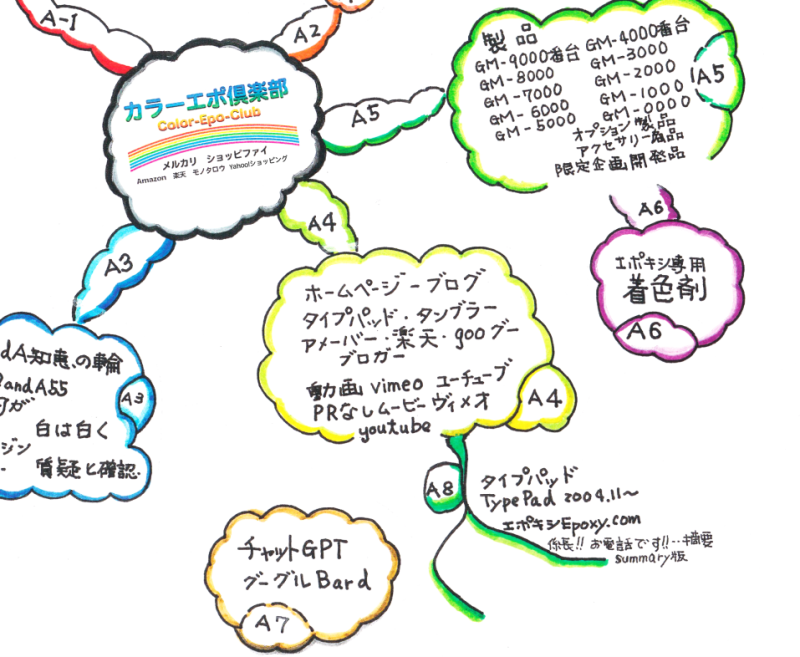 A-1
A2
カラーエポ倶楽部
Color-Epo-Club
メルカリ ショッピファイ
Amazon 楽天 モノタロウ Yahoo!ショッピング
A5
製品
GM-9000番台
GM-8000
GM-7000
GM-6000
GM-5000
GM-4000番台
GM-3000
GM-2000
GM-1000
GM-0000
オプション製品
アクセサリー商品
限定企画開発品
A5
A6
エポキシ専用
着色剤
A6
A4
ホームページーブログ
タイプパッド・タンブラー
アメーバー・楽天・gooグー
ブロガー
動画 vimeo ユーチューブ
PRなしムービー ヴィメオ
youtube
A4
A3
dA知恵の輪
andA55
が
白は白く
ジン
質疑と確認
A3
A8
タイプパッド
TypePad 2004.11〜
エポキシEpoxy.com
係長!! お電話です!!…摘要
summary版
チャットGPT
グーグルBard
A7